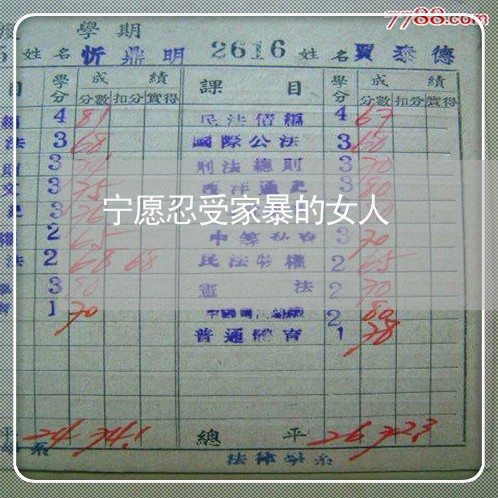 7788.com
學期
5 姓名 忻鼎明 2616 姓名 賈泰德
目 學分 成績 課目 學分 成績
分數 扣分 實得 分數 扣分 實得
4 81 民法債編 4 67
法 3 68 國際公法 3 60
3 刑法總則 3 70
3 75 西洋通史 3 80
宁愿忍受家暴的女人
2 65 3 70
法 2 68 68 民法物權 2 65
3 80 憲法 2 70
1 70 2 80
普通體育 1 78
平 24 74.1 總平 26 72.3
系 法律學系